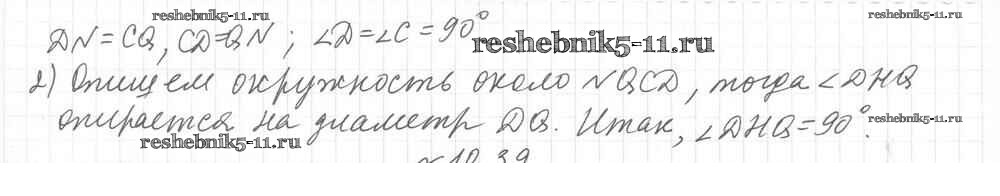 reshebnik5-11.ru
reshebnik5-11.ru
DN=CQ, CD=QN; ∠D=∠C=90°
reshebnik5-11.ru
2) Опишем окружность около NQCD, тогда ∠DHQ
опирается на диаметр DQ. Итак, ∠DHQ=90°.
reshebnik5-11.ru
reshebnik5-11.ru